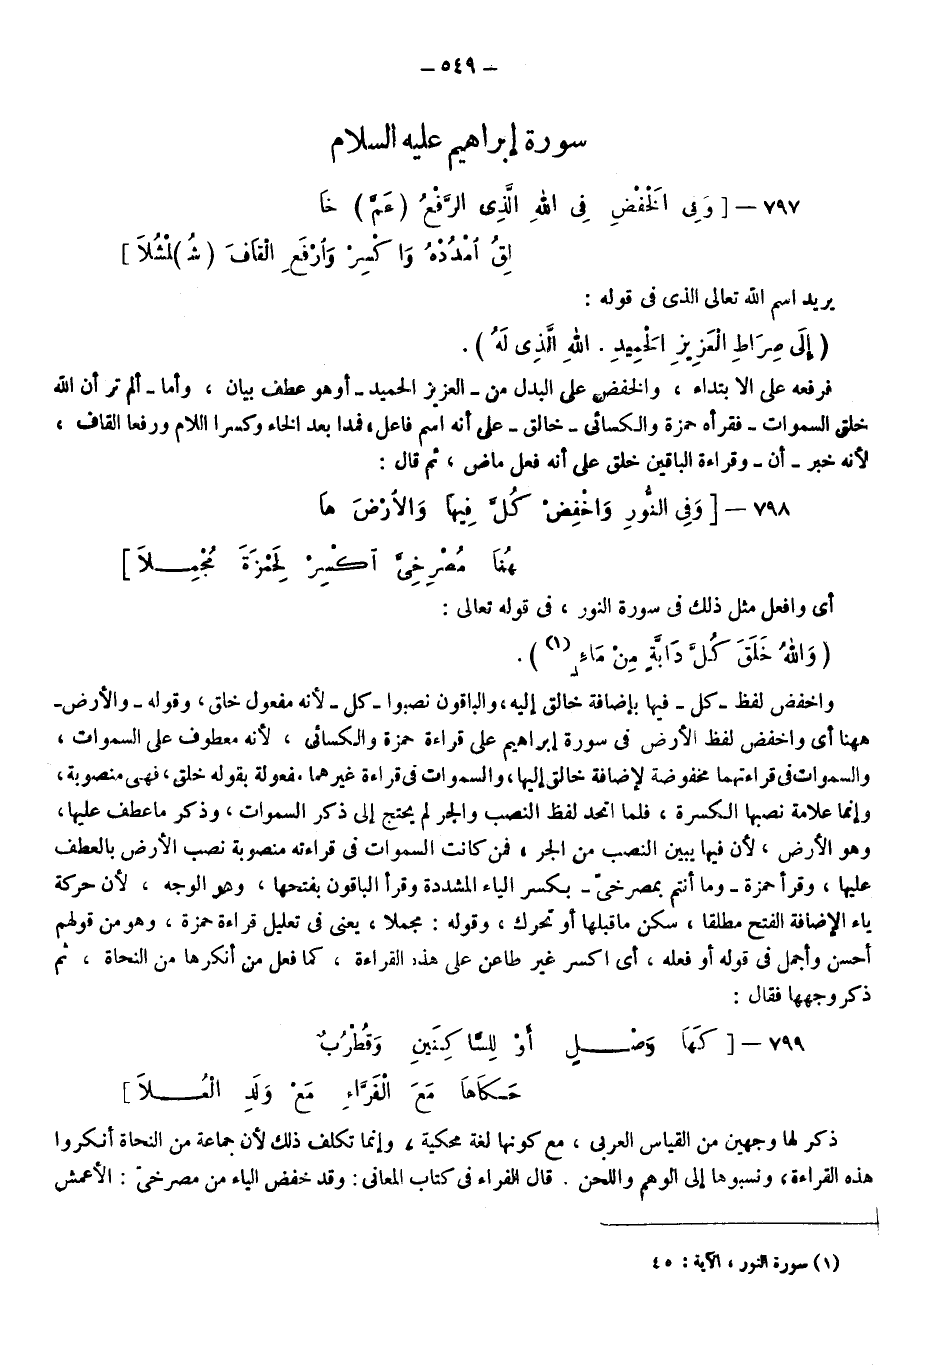 – ٥٤٩ –
سورة إبراهيم عليه السلام
٧٩٧ – [ وَفِى الْخَفْضِ فِى اللهِ الَّذِى الرَّفْعُ (عَمَّ) خَا
لِقُ امْدُدْهُ وَاكْسِرْ وَارْفَعِ الْقَافَ (شُـ)لْشُلاَ ]
يريد اسم الله تعالى الذى فى قوله :
( إِلَى صِرَاطِ الْعَزِيزِ الْحَمِيدِ . اللهِ الَّذِى لَهُ ) .
فرفعه على الابتداء ، والخفض على البدل من ـ العزيز الحميد ـ أو هو عطف بيان ، وأما ـ ألم تر أن الله
خلق السموات ـ فقرأه حمزة والكسائى ـ خالق ـ على أنه اسم فاعل، فمدا بعد الخاء وكسرا اللام ورفعا القاف ،
لأنه خبر ـ أن ـ وقراءة الباقين خلق على أنه فعل ماض ، ثم قال :
٧٩٨ – [ وَفِى النُّورِ وَاخْفِضْ كُلَّ فِيهَا وَالأَرْضَ هَا
هُنَا مُصْرِخِىَّ اكْسِرْ لِحَمْزَةَ مُجْمِـلاَ ]
أى وافعل مثل ذلك فى سورة النور ، فى قوله تعالى :
( وَاللهُ خَلَقَ كُلَّ دَابَّةٍ مِنْ مَاءٍ (١) ) .
واخفض لفظ ـ كل ـ فيها بإضافة خالق إليه، والباقون نصبوا ـ كل ـ لأنه مفعول خلق، وقوله ـ والأرض ـ
ههنا أى واخفض لفظ الأرض فى سورة إبراهيم على قراءة حمزة والكسائى ، لأنه معطوف على السموات ،
والسموات فى قراءتهما مخفوضة لإضافة خالق إليها، والسموات فى قراءة غيرهما مفعولة بقوله خلق، فهى منصوبة،
وإنما علامة نصبها الكسرة ، فلما اتحد لفظ النصب والجر لم يحتج إلى ذكر السموات ، وذكر ما عطف عليها،
وهو الأرض ، لأن فيها يبين النصب من الجر ، فمن كانت السموات فى قراءته منصوبة نصب الأرض بالعطف
عليها ، وقرأ حمزة ـ وما أنتم بمصرخىّ ـ بكسر الياء المشددة وقرأ الباقون بفتحها ، وهو الوجه ، لأن حركة
ياء الإضافة الفتح مطلقا ، سكن ماقبلها أو تحرك ، وقوله : مجملا ، يعنى فى تعليل قراءة حمزة ، وهو من قولهم
أحسن وأجمل فى قوله أو فعله ، أى اكسر غير طاعن على هذه القراءة ، كما فعل من أنكرها من النحاة ، ثم
ذكر وجهها فقال :
٧٩٩ – [ كَهَا وَصْـلٍ أَوْ لِلسَّاكِنَيْنِ وَقُطْرُبٌ
حَكَاهَا مَعَ الْفَرَّاءِ مَعْ وَلَدِ الْعُـلاَ ]
ذكر لها وجهين من القياس العربى ، مع كونها لغة محكية ، وإنما تكلف ذلك لأن جماعة من النحاة أنكروا
هذه القراءة، ونسبوها إلى الوهم واللحن . قال الفراء فى كتاب المعانى : وقد خفض الياء من مصرخىّ : الأعمش
(١) سورة النور ، الآية : ٤٥